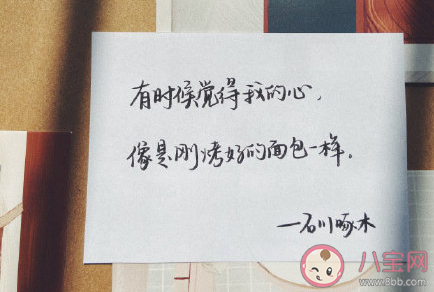 有时候觉得我的心，
像是刚烤好的面包一样。
—石川啄木
八宝网
www.8bb.com